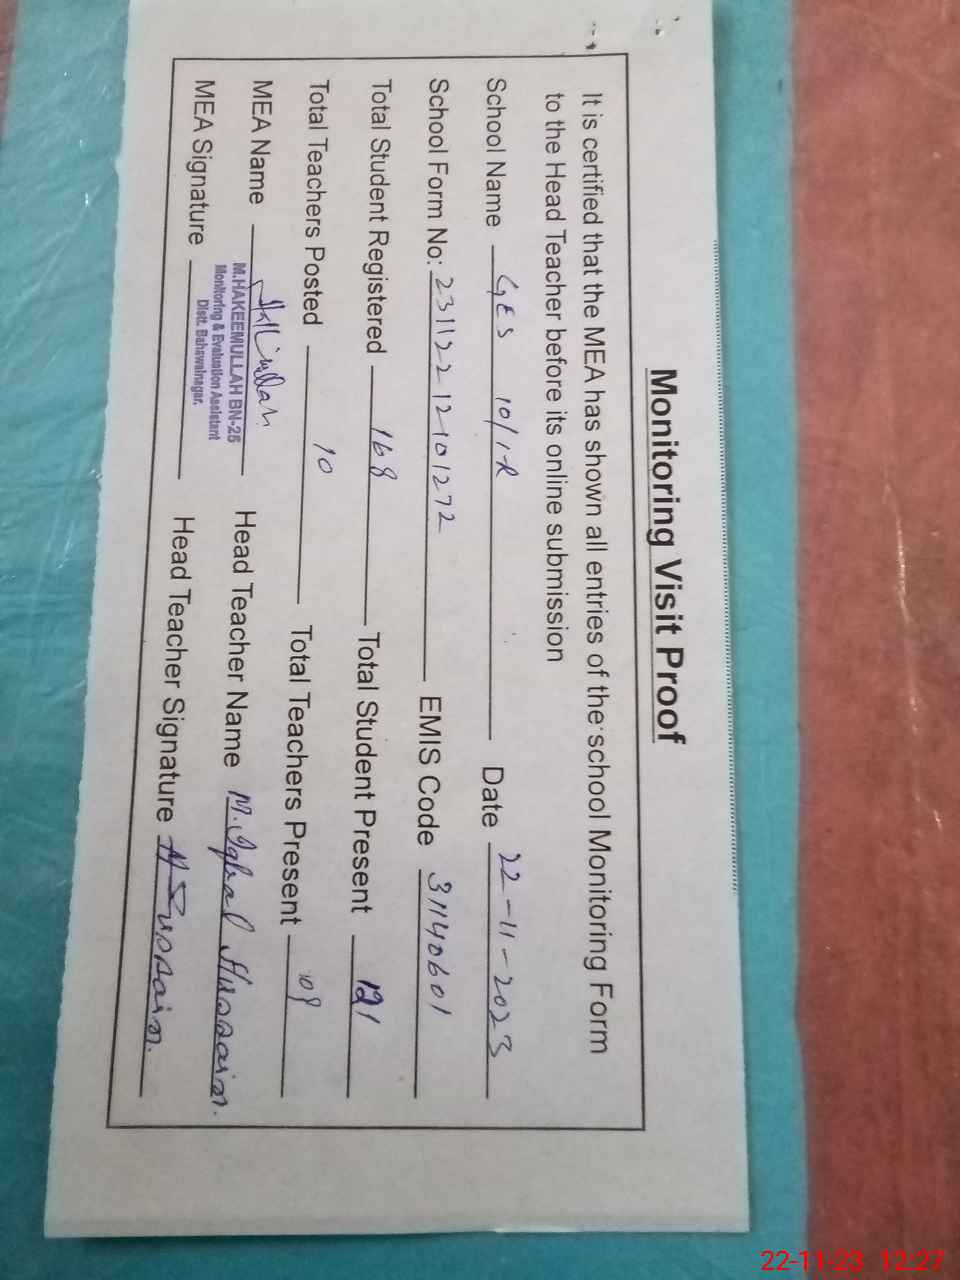 Monitoring Visit Proof
It is certified that the MEA has shown all entries of the school Monitoring Form
to the Head Teacher before its online submission
School Name GES 10/1-R Date 22-11-2023
School Form No: 23112212101272 EMIS Code 31140601
Total Student Registered 168 Total Student Present 121
Total Teachers Posted 10 Total Teachers Present 09
MEA Name Head Teacher Name M. Iqbal Hussain.
MEA Signature Head Teacher Signature Hussain.
M.HAKEEMULLAH BN-26
Monitoring & Evaluation Assistant
Distt. Bahawalnagar.
22-11-23 12:27